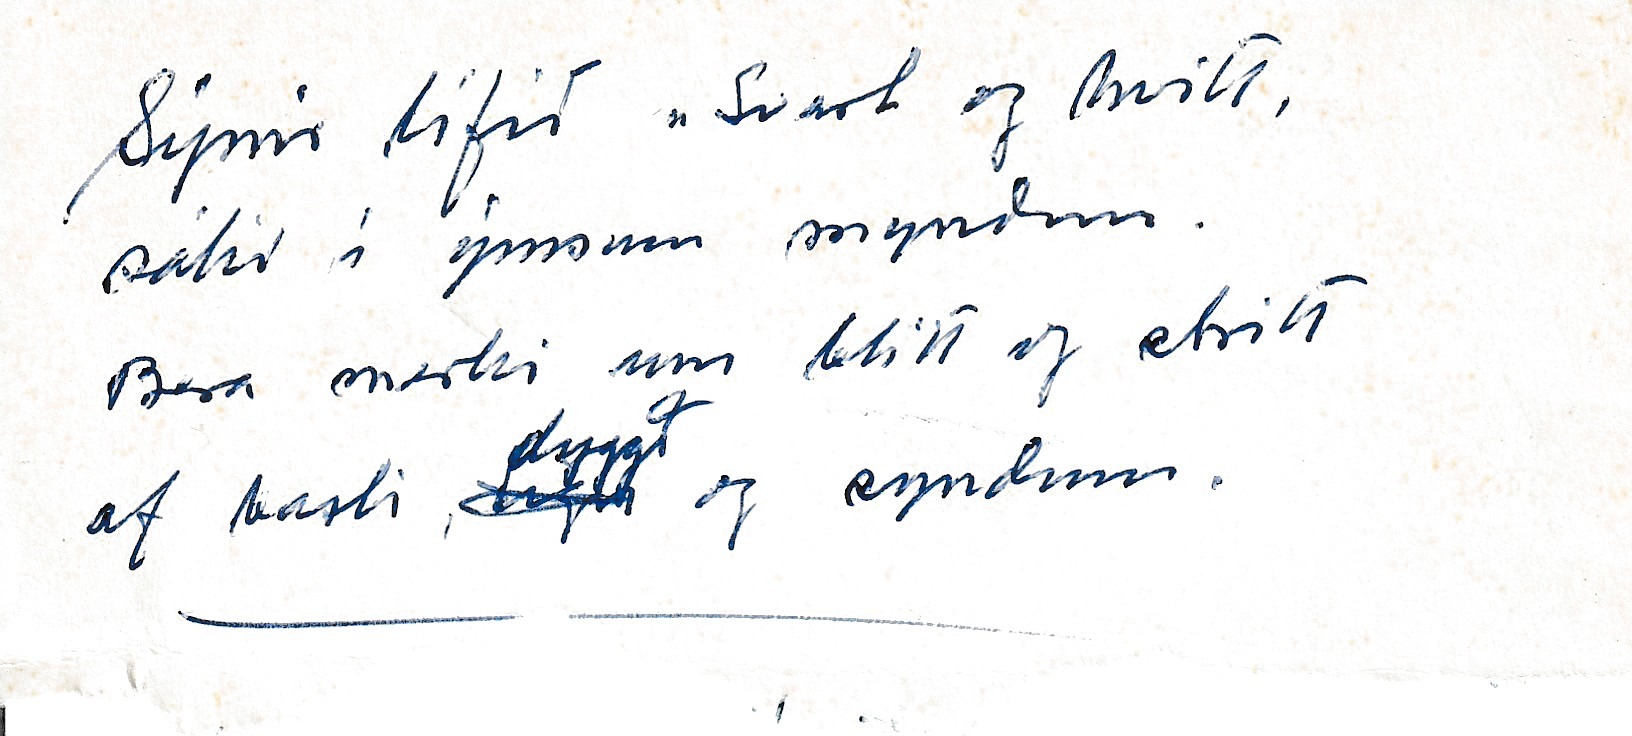 Sýnir lífið „Svart og hvítt,
sálir í ýmsum myndum.
Bera merki um blítt og strítt
af basli, dyggð og syndum.